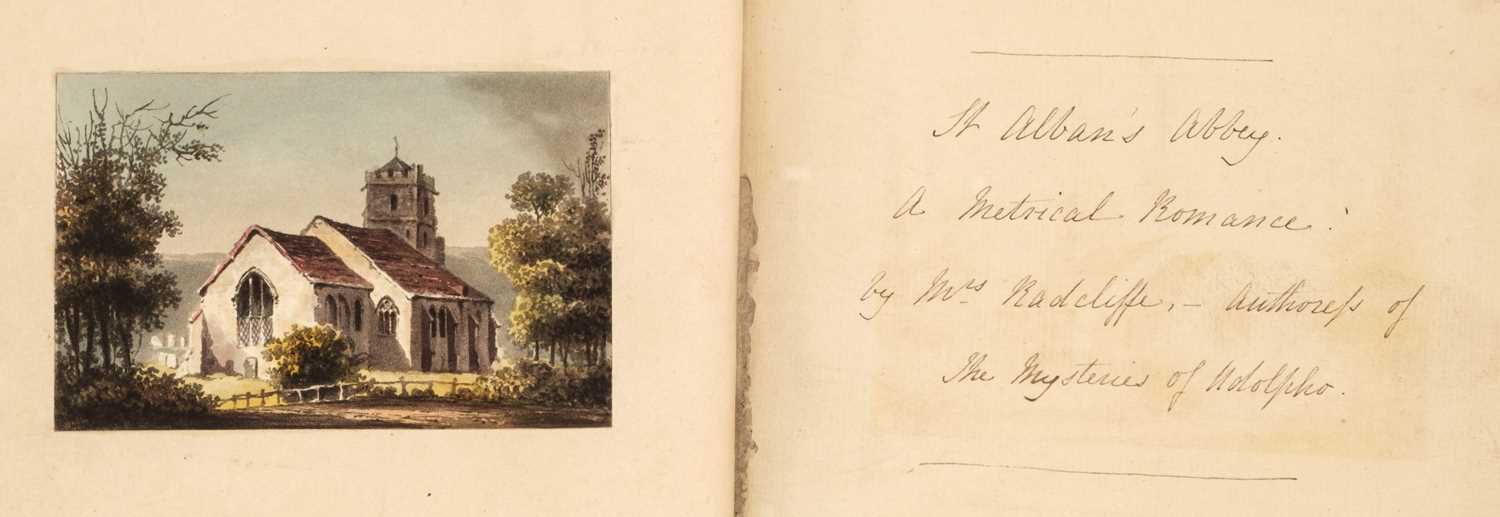 St Alban's Abbey.
A Metrical Romance.
by Mrs Radcliffe, – Authoreſs of
The Mysteries of Udolpho.